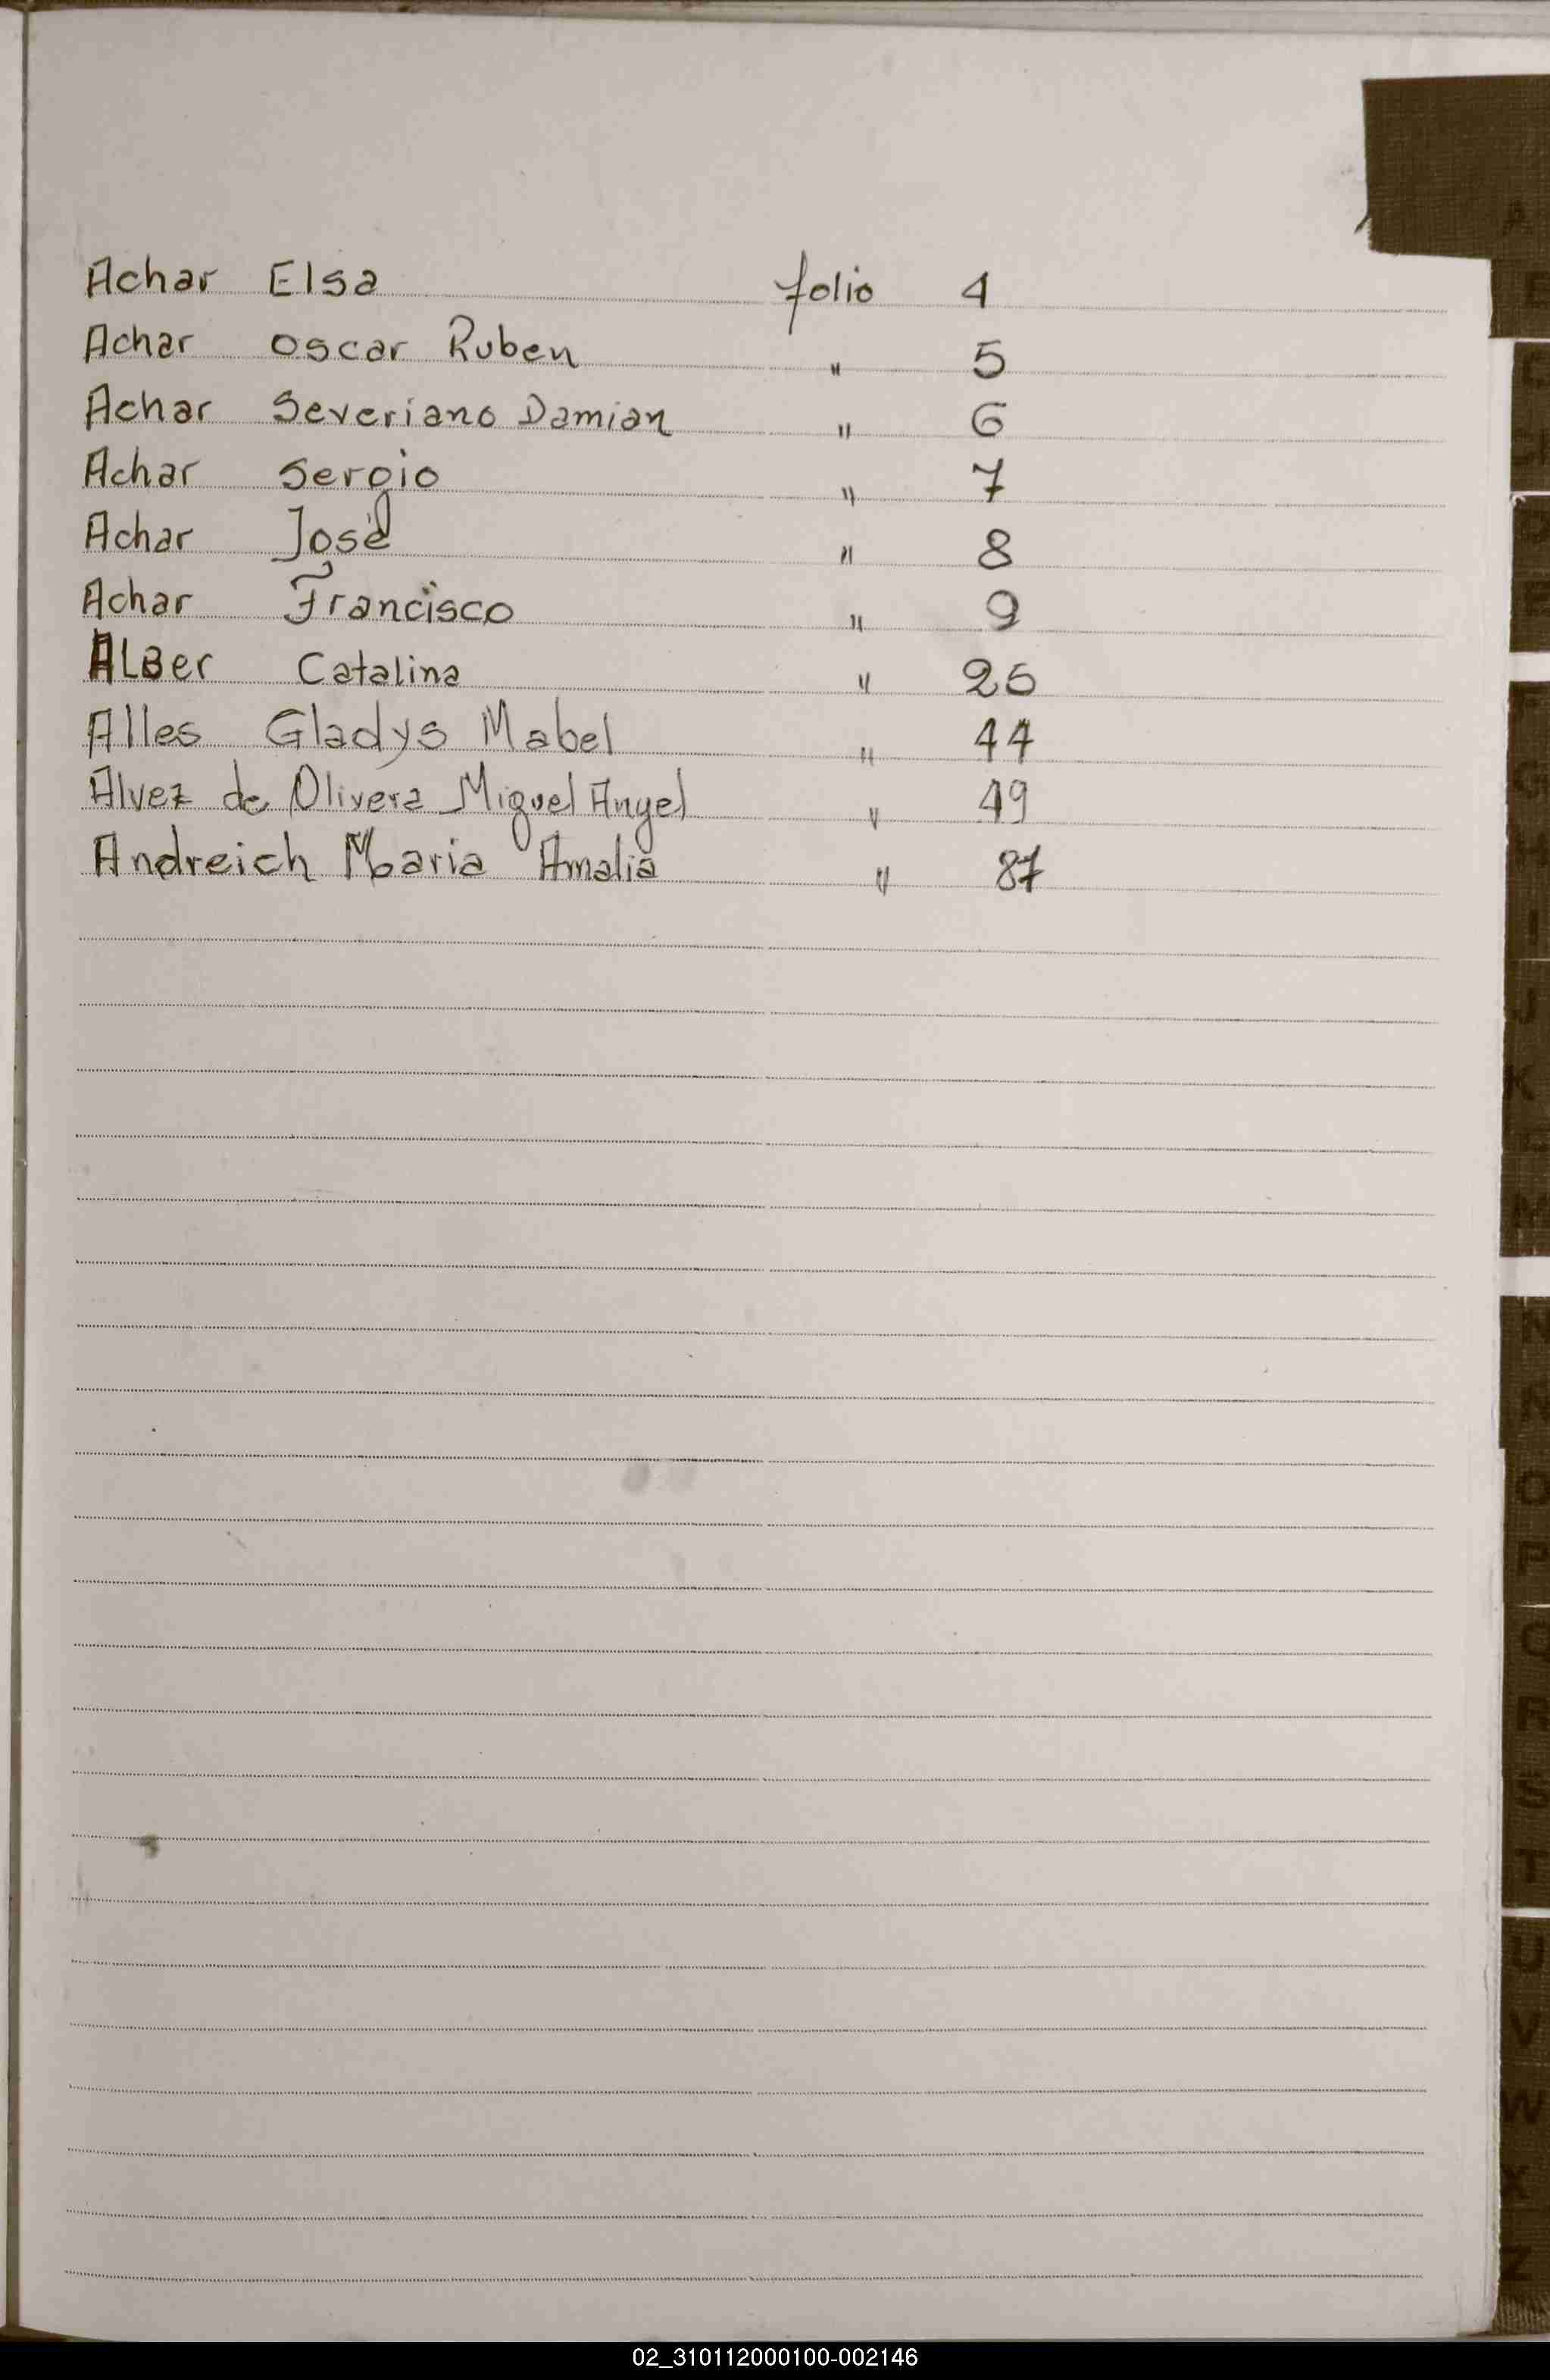 Achar Elsa folio 4
Achar Oscar Ruben " 5
Achar Severiano Damian " 6
Achar Sergio " 7
Achar José " 8
Achar Francisco " 9
ALBer Catalina " 26
Alles Gladys Mabel " 44
Alvez de Olivera Miguel Angel " 49
Andreich Maria Amalia " 87
A
I
J
K
N
O
P
R
S
T
U
V
W
X
Z
02_310112000100-002146